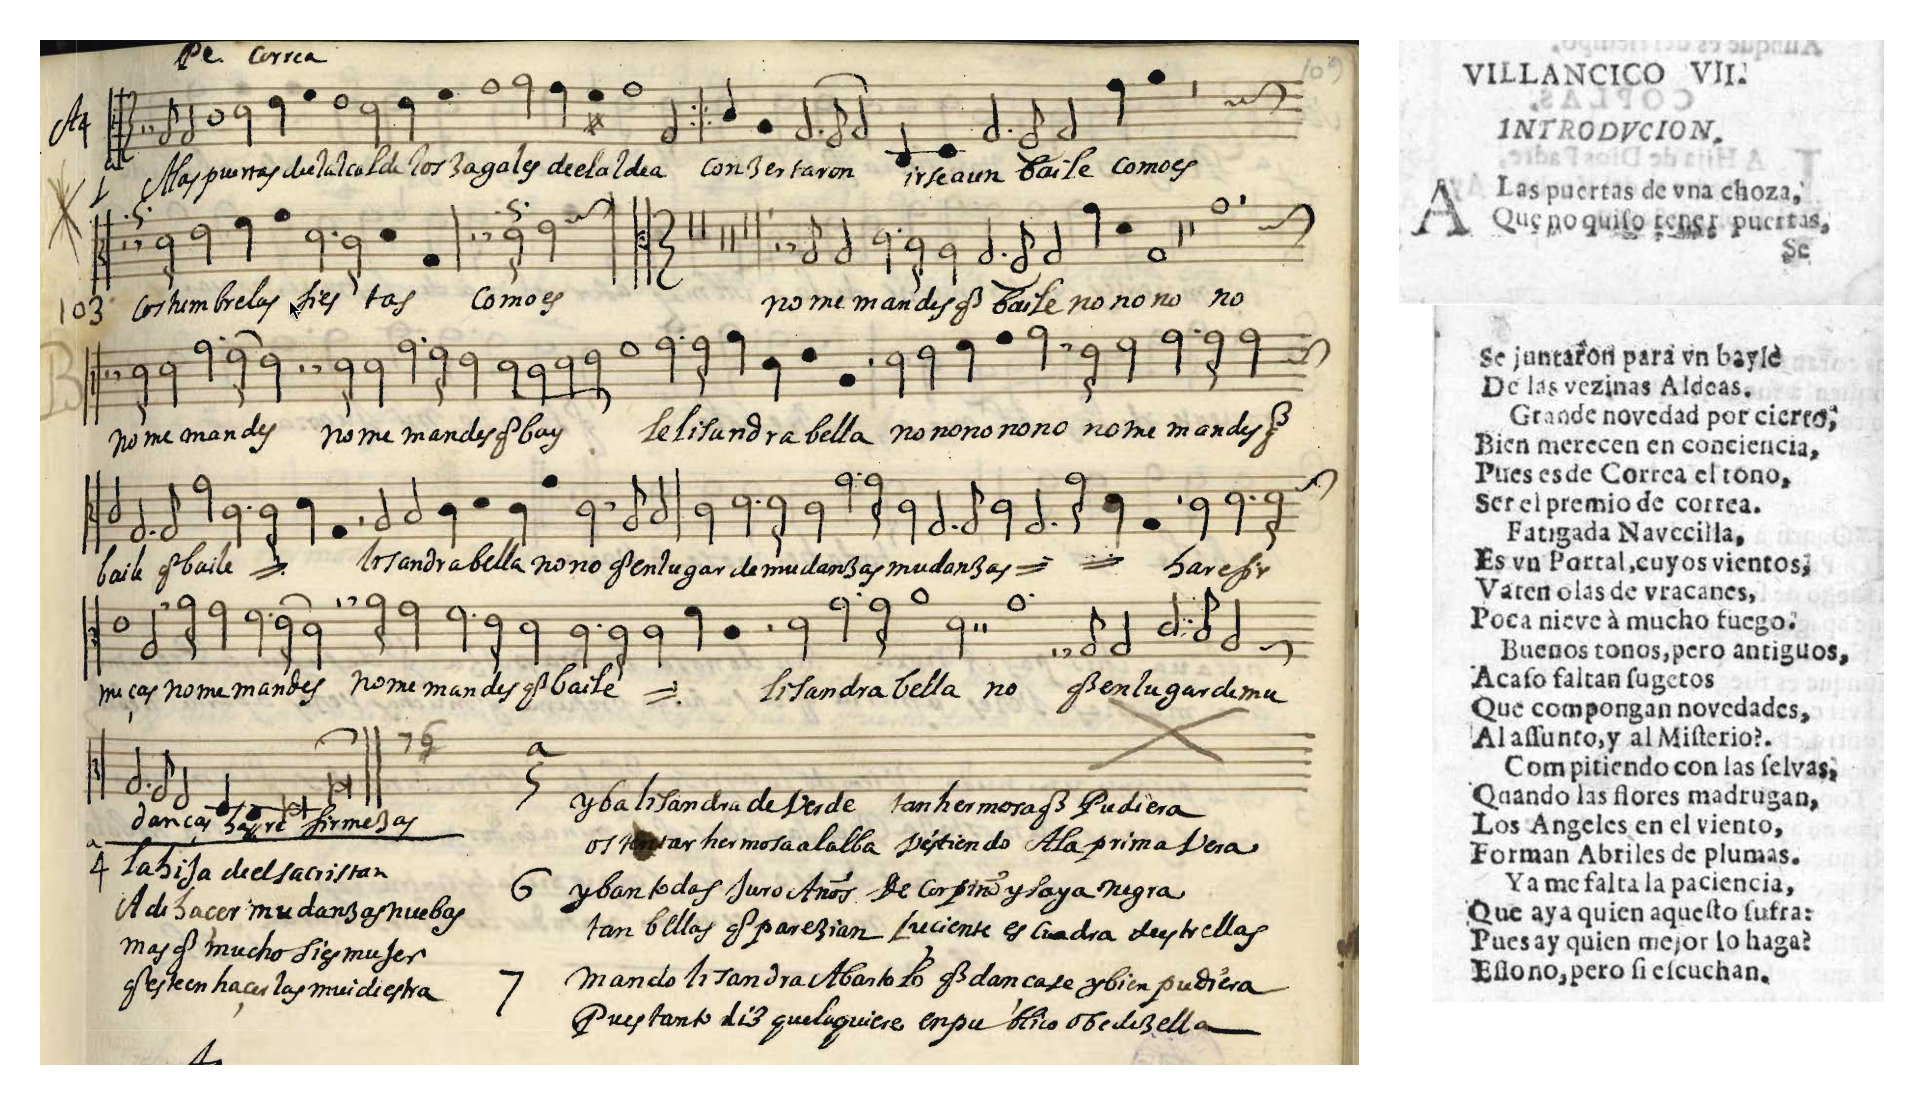 Pe. Correa
A4
109
A las puertas de el alcalde los zagales de el aldea conzertaron irse a un baile como es
103 costumbre las fies tas como es no me mandes q̃ baile no no no no
no me mandes no me mandes q̃ bay le lisandra bella no no no no no no me mandes q̃
baile q̃ baile lisandra bella no no q̃ en lugar de mudanzas mudanzas hare fir
meças no me mandes no me mandes q̃ baile lisandra bella no q̃ en lugar de mu
danças hare firmezas
4 la hija de el sacristan
A de hacer mudanzas nuebas
mas q̃ mucho si es mujer
q̃ esteen haçerlas mui diestra
5 yba lisandra de Verde tan hermosa q̃ Pudiera
ostentar hermosa al alba Vistiendo A la prima Vera
6 yban todas Juro Años De Corpiño y saya negra
tan bellas q̃ parezian Luciente es Cuadra de estrellas
7 mando lisandra A barto lo q̃ dancase y bien pudiera
Pues tanto diz que la quiere en pu blico obedezella
VILLANCICO VII.
INTRODVCION.
A Las puertas de vna choza,
Que no quiſo tener puertas,
Se
Se juntaron para vn bayle
De las vezinas Aldeas.
Grande novedad por cierto,
Bien merecen en conciencia,
Pues es de Correa el tono,
Ser el premio de correa.
Fatigada Navecilla,
Es vn Portal, cuyos vientos,
Vaten olas de vracanes,
Poca nieve à mucho fuego.
Buenos tonos, pero antiguos,
Acaſo faltan ſugetos
Que compongan novedades,
Al aſſunto, y al Miſterio?.
Compitiendo con las ſelvas,
Quando las flores madrugan,
Los Angeles en el viento,
Forman Abriles de plumas.
Ya me falta la paciencia,
Que aya quien aqueſto ſufra:
Pues ay quien mejor lo haga?
Eſſo no, pero ſi eſcuchan.